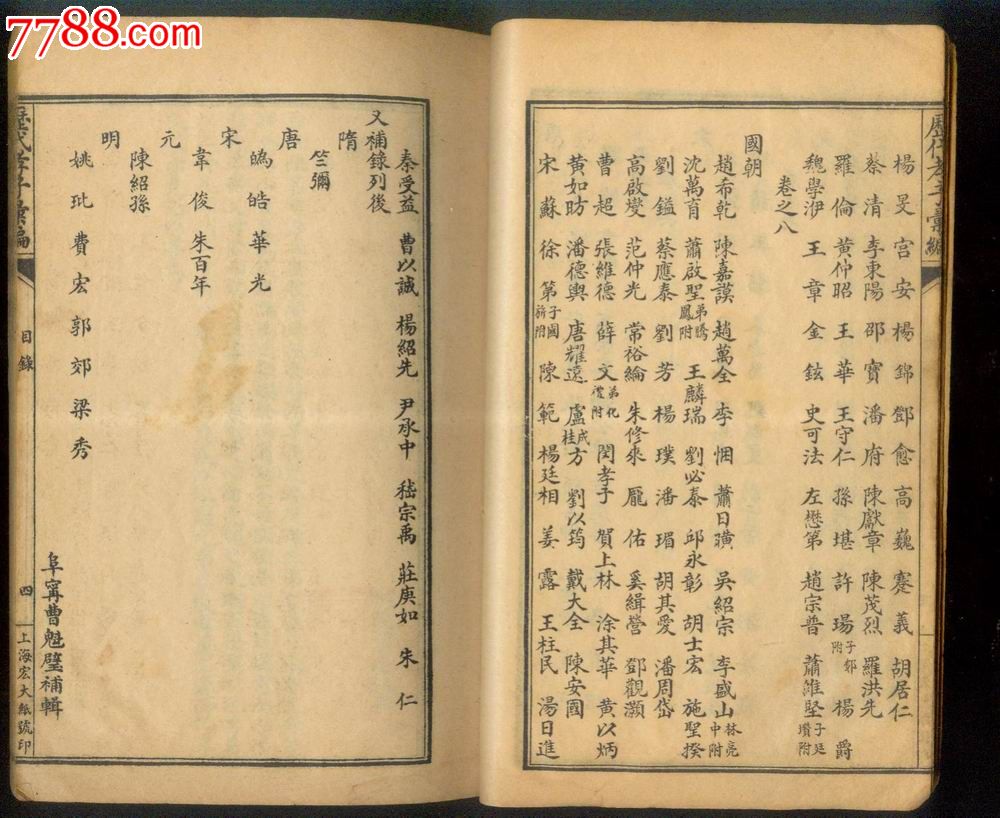 7788.com
歷代孝子彙編
楊旻 宮安 楊錦 鄧愈 高巍 蹇義 胡居仁
蔡清 李東陽 邵寶 潘府 陳獻章 陳茂烈 羅洪先
羅倫 黃仲昭 王華 王守仁 孫堪 許瑒 子郛附 楊爵
魏學洢 王章 金鉉 史可法 左懋第 趙宗普 蕭維堅 子廷瓚附
卷之八
國朝
趙希乾 陳嘉謨 趙萬全 李悃 蕭日曂 吳紹宗 李盛山 林亮中附
沈萬育 蕭啟聖 弟騰鳳附 王麟瑞 劉必泰 邱永彰 胡士宏 施聖揆
劉鎰 蔡應泰 劉芳 楊璞 潘瑂 胡其愛 潘周岱
高啟燮 范仲光 常裕綸 朱修來 龐佑 奚緝營 鄧觀灝
曹超 張維德 薛文 弟化禮附 閔孝子 賀上林 涂其華 黃以炳
黃如昉 潘德輿 唐耀遠 盧成桂 方 劉以筠 戴大全 陳安國
宋蘇 徐第 子國 附 陳範 楊廷相 姜露 王柱民 湯日進
秦受益 曹以誠 楊紹先 尹承中 嵇宗禹 莊庚如 朱仁
又補錄列後
隋
竺彌
唐
皓 華光
宋
韋俊 朱百年
元
陳紹孫
明
姚玭 費宏 郭郊 梁秀
阜寧曹魁璧補輯
歷代孝子彙編
目錄
四
上海宏大紙號印